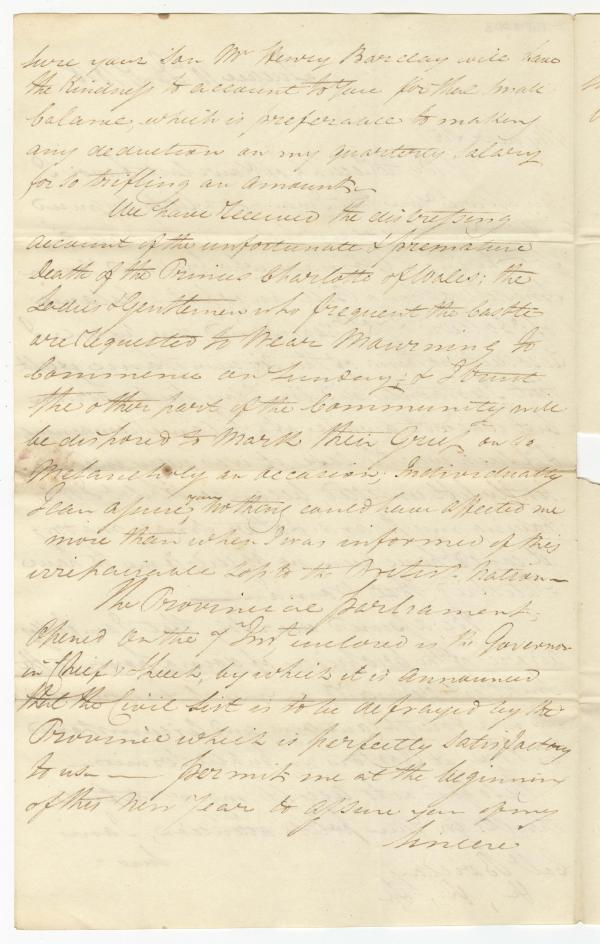 sure your Son Mr Henry Barclay will have
the Kindness to account to you for the small
balance, which is preferance to making
any deduction on my quarterly Salary
for so trifling an amount.
We have received the distressing
account of the unfortunate & premature
Death of the Princess Charlotte of Wales; the
Ladies & Gentlemen who frequent the Castle
are requested to Wear Mourning to
Commence on Sunday; & I trust
the other part of the Community will
be disposed to Mark their Grief on so
Melancholy an occasion, Individually
I can assure you, nothing could have affected me
more than when I was informed of this
irrepairable Loss to the British Nation—
The Provincial Parliament,
Opened on the 7th Inst, enclosed is the Governor
in Chief's Speech, by which it is announced
that the Civil List is to be defrayed by the
Province which is perfectly satisfactory
to us— permit me at the beginning
of this New Year to assure you of my
Sincere